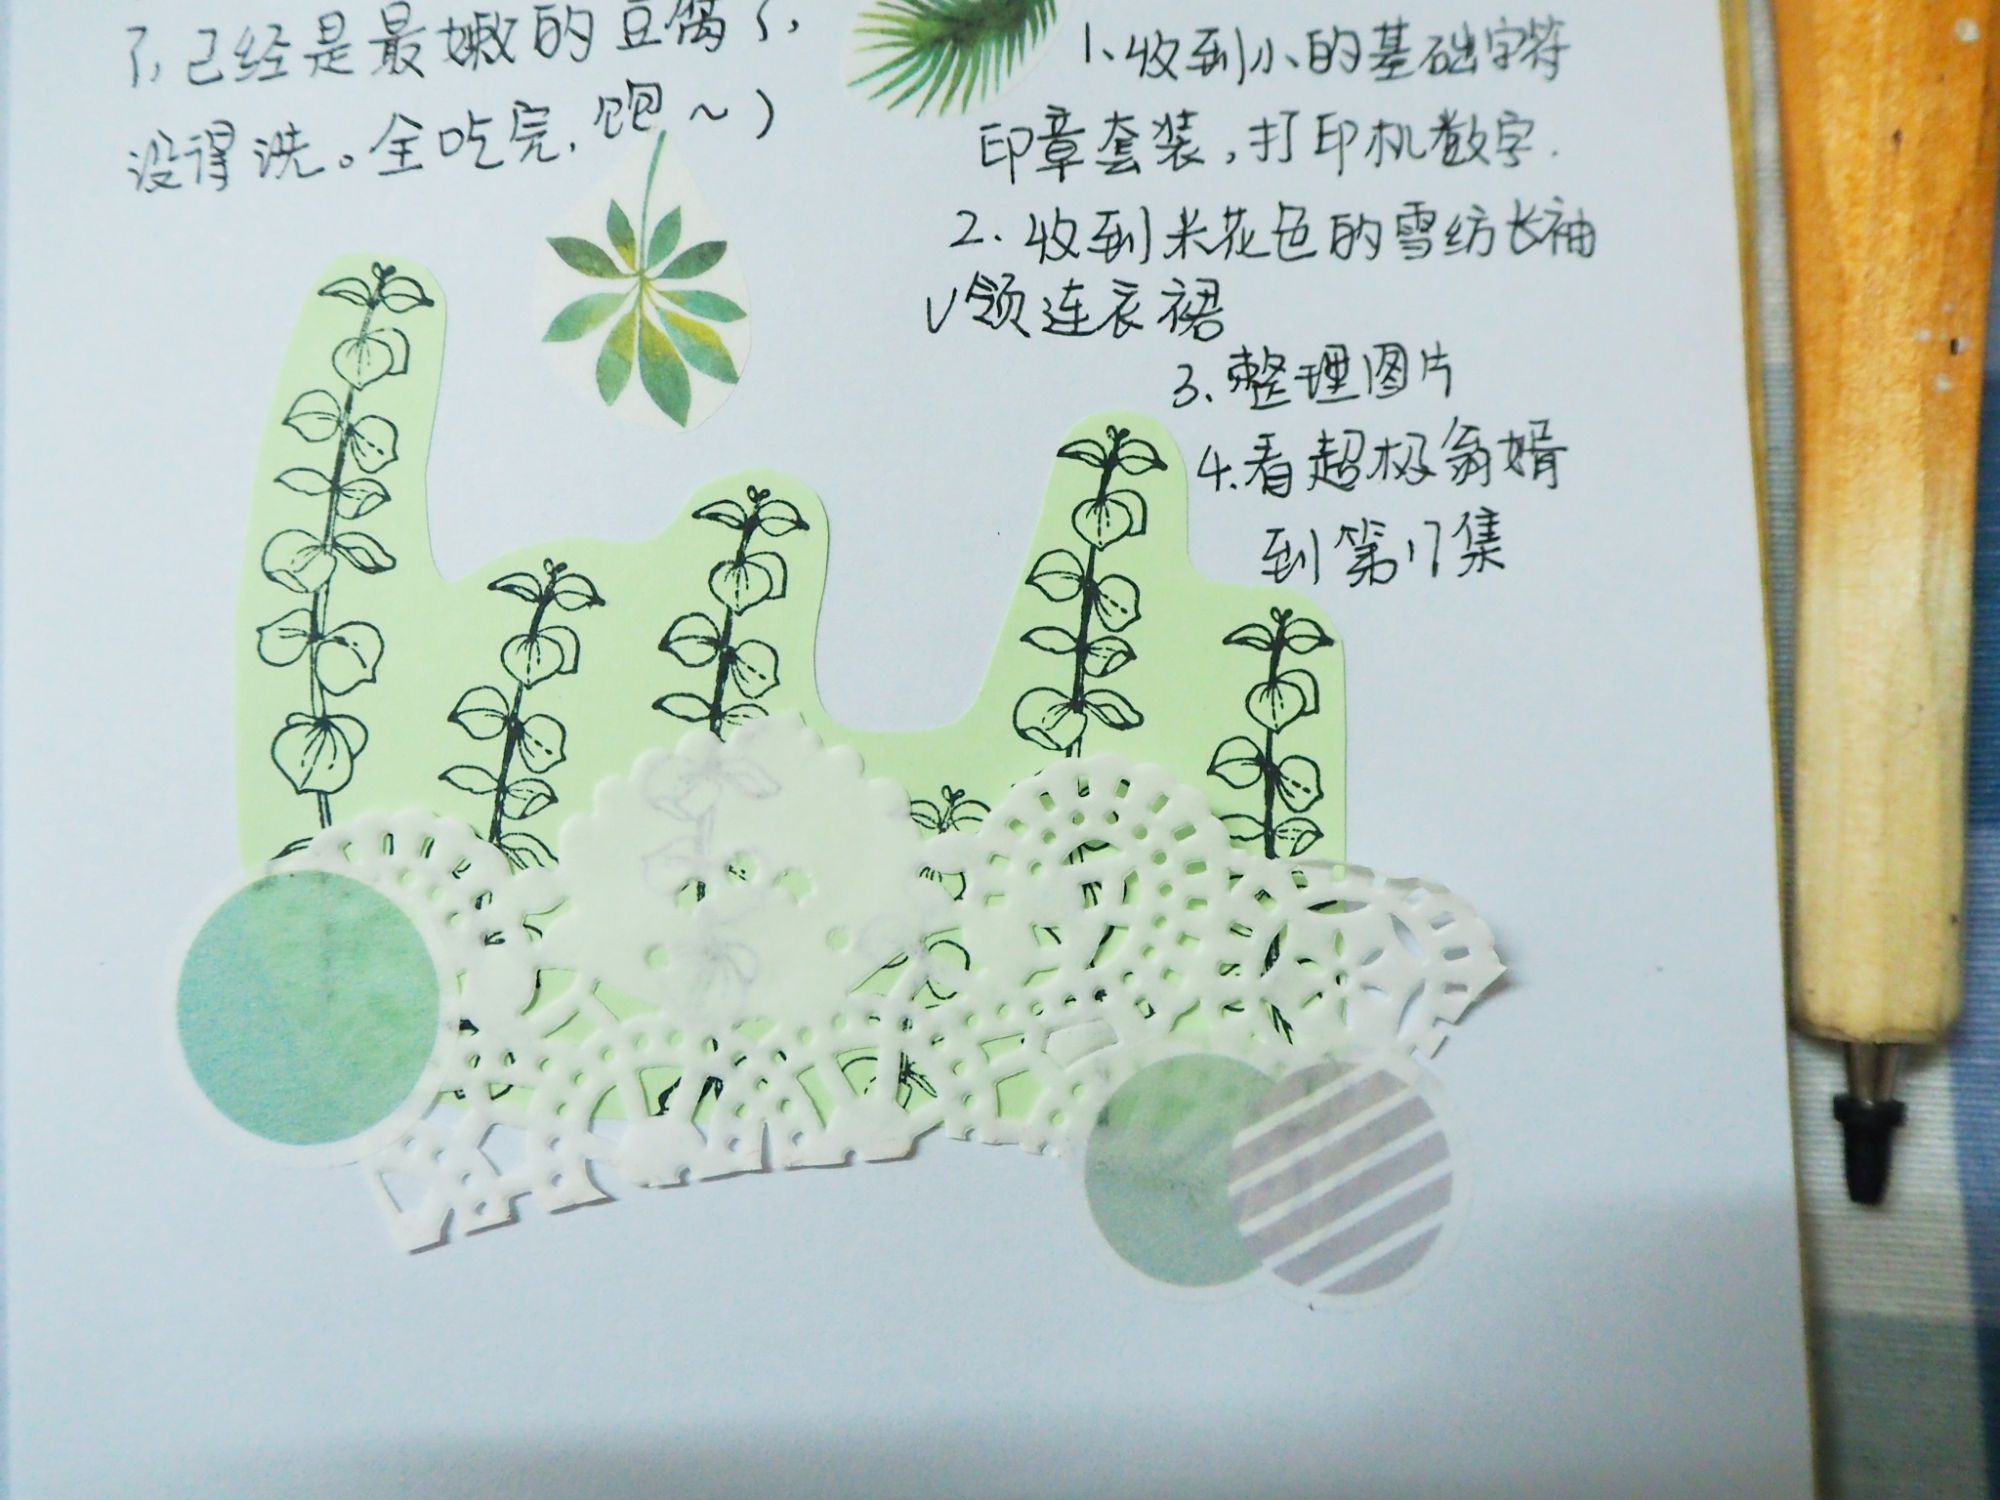 了，已经是最嫩的豆腐了，
没得洗。全吃完，饱～）
1、收到小的基础字符
印章套装，打印机数字.
2. 收到米花色的雪纺长袖
V领连衣裙
3、整理图片
4.看超极翁婿
到第17集